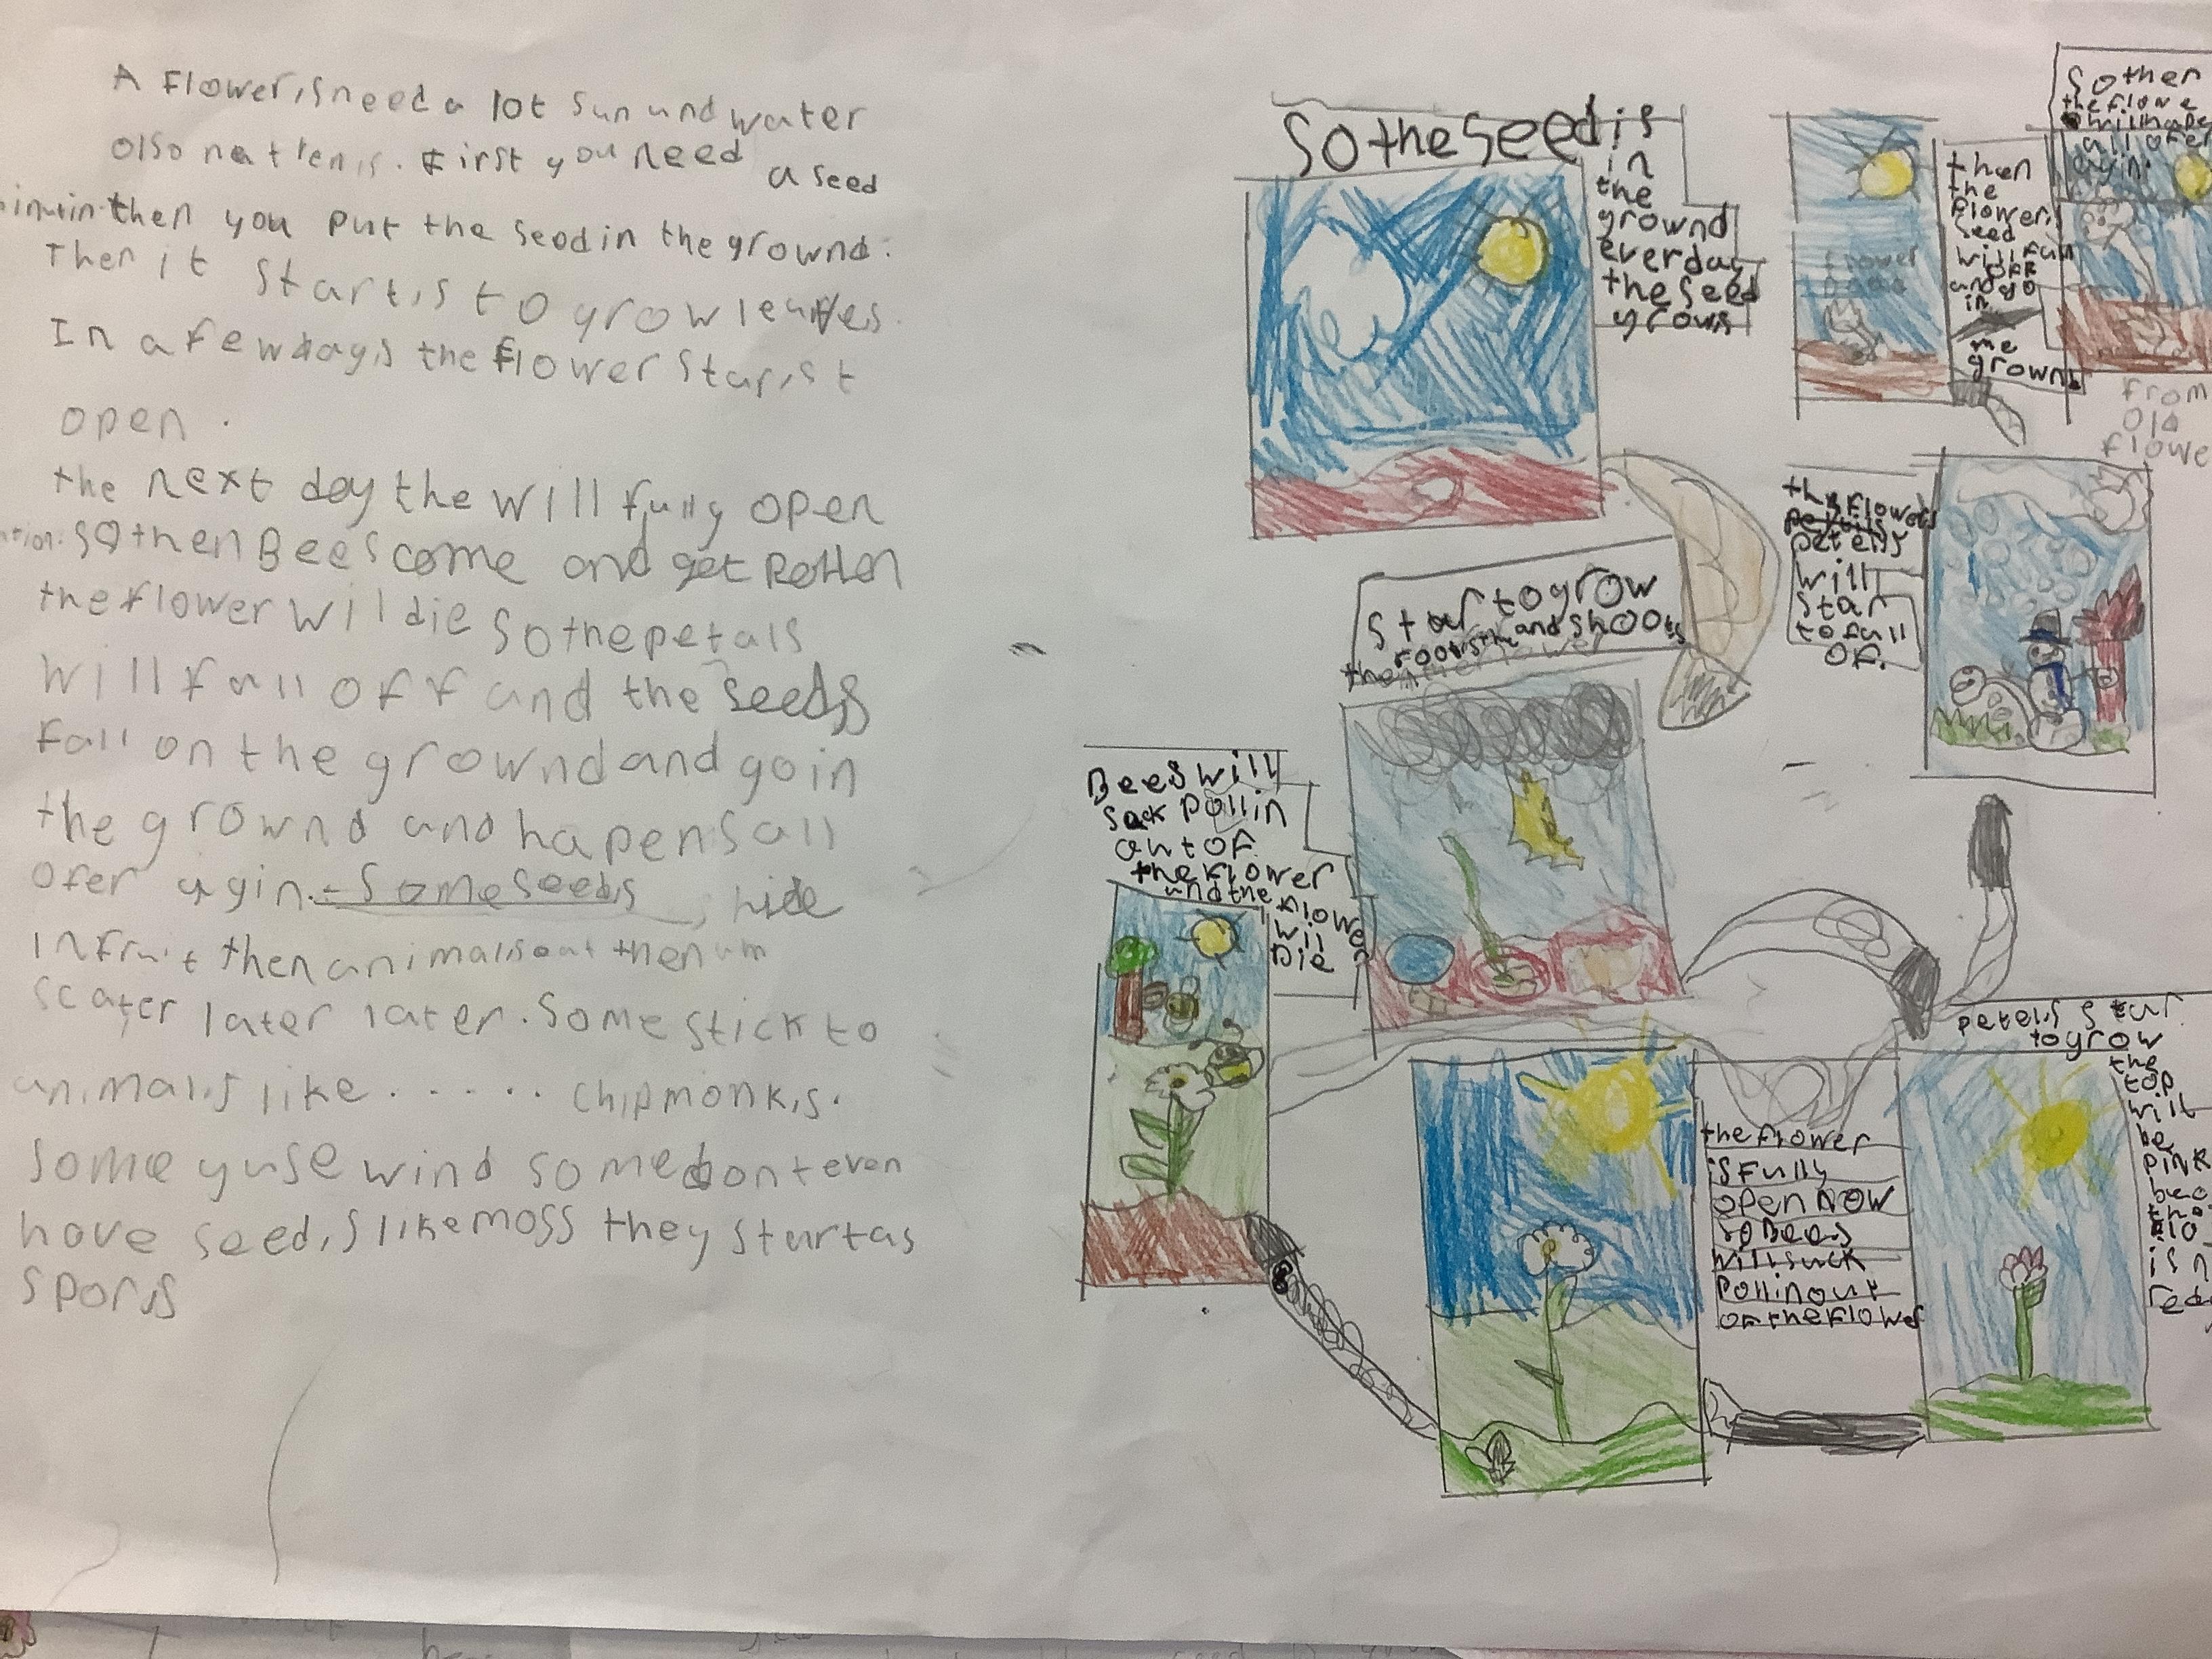 A flowers need a lot sun und water
olso
First you need a seed
then you put the seed in the grownd.
Then it starts to grow leaves.
In a few days the flower starst
open.
the next day the will fully open
so then Bees come and get Pollen
the flower will die so the petals
will fall off and the seeds
fall on the grownd and go in
the grownd and hapens all
ofer agin. Some seeds hide
in fruit then animals eat then um
scater later later. Some stick to
animals like ..... chipmonks.
some yuse wind some dont even
have seeds like moss they start as
spors
So the seed is
in
the
grownd
everday
the seed
grows
Star to grow
roots the and shoots
the flower
Bees will
suck pollin
out of
the flower
und the flower
will
Die
the flower
is fully
open now
so Bees
will suck
pollin out
of the flower
petels star
to grow
the
top
will
be
pink
is
the flowers
petells
will
star
to fall
of.
then
the
flowers
seed
will fall
off
and go
in
me
grownd
flower
So then
the flowe
will hape
all ofer
agin.
from
old
flowe